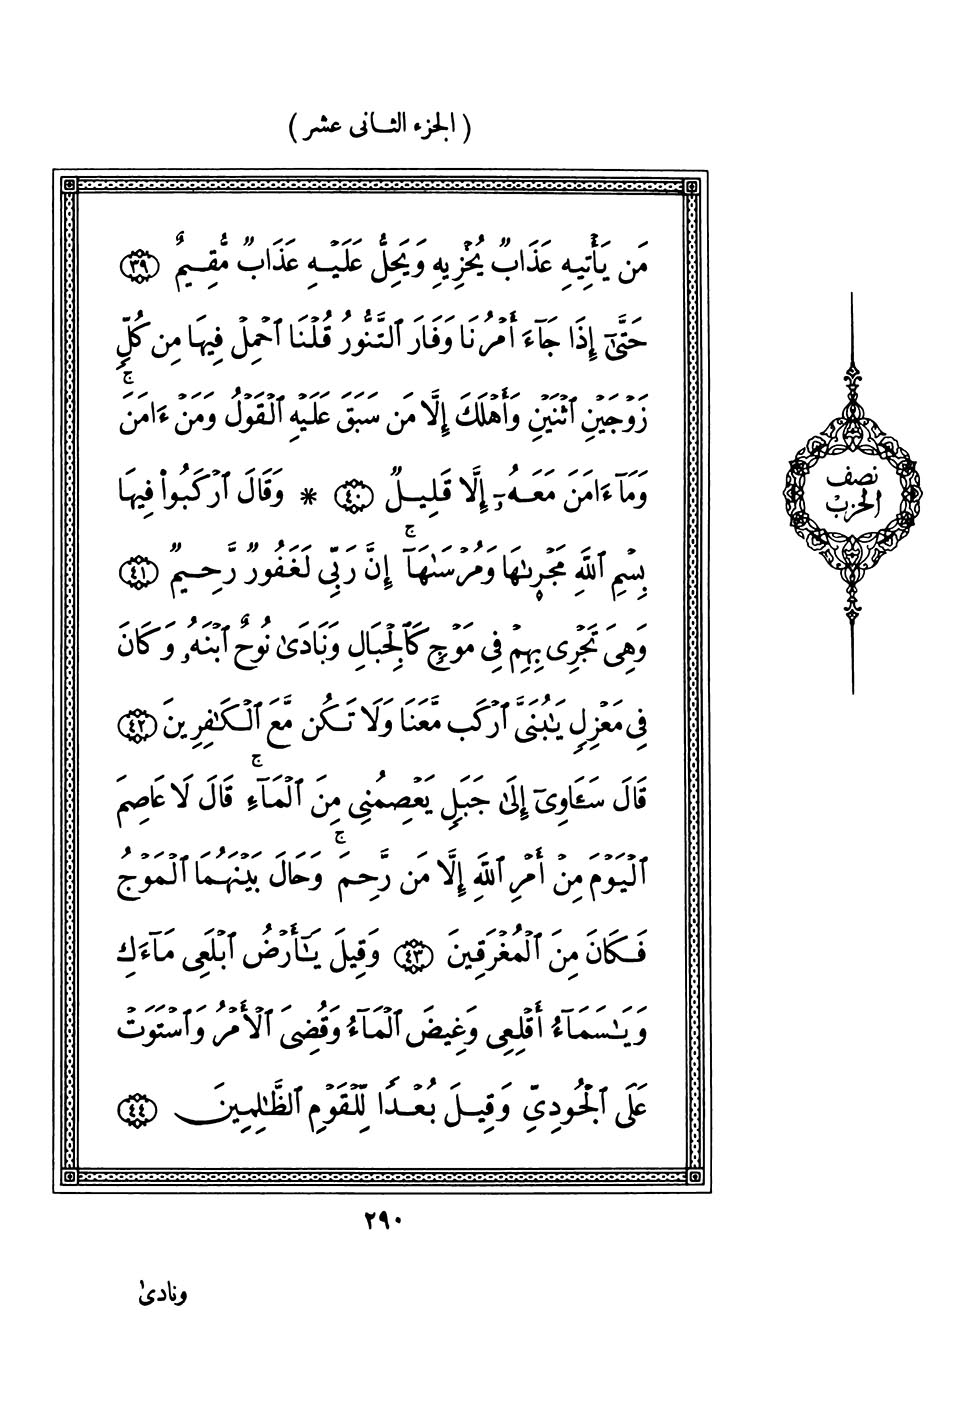 ( الجزء الثانى عشر )
مَن يَأْتِيهِ عَذَابٌ يُخْزِيهِ وَيَحِلُّ عَلَيْهِ عَذَابٌ مُّقِيمٌ ٣٩
حَتَّىٰٓ إِذَا جَآءَ أَمْرُنَا وَفَارَ ٱلتَّنُّورُ قُلْنَا ٱحْمِلْ فِيهَا مِن كُلٍّ
زَوْجَيْنِ ٱثْنَيْنِ وَأَهْلَكَ إِلَّا مَن سَبَقَ عَلَيْهِ ٱلْقَوْلُ وَمَنْ ءَامَنَ ۚ
وَمَآ ءَامَنَ مَعَهُۥٓ إِلَّا قَلِيلٌ ٤٠ * وَقَالَ ٱرْكَبُوا۟ فِيهَا
بِسْمِ ٱللَّهِ مَجْر۪ىٰهَا وَمُرْسَىٰهَآ ۚ إِنَّ رَبِّى لَغَفُورٌ رَّحِيمٌ ٤١
وَهِىَ تَجْرِى بِهِمْ فِى مَوْجٍ كَٱلْجِبَالِ وَنَادَىٰ نُوحٌ ٱبْنَهُۥ وَكَانَ
فِى مَعْزِلٍ يَٰبُنَىَّ ٱرْكَب مَّعَنَا وَلَا تَكُن مَّعَ ٱلْكَٰفِرِينَ ٤٢
قَالَ سَـَٔاوِىٓ إِلَىٰ جَبَلٍ يَعْصِمُنِى مِنَ ٱلْمَآءِ ۚ قَالَ لَا عَاصِمَ
ٱلْيَوْمَ مِنْ أَمْرِ ٱللَّهِ إِلَّا مَن رَّحِمَ ۚ وَحَالَ بَيْنَهُمَا ٱلْمَوْجُ
فَكَانَ مِنَ ٱلْمُغْرَقِينَ ٤٣ وَقِيلَ يَٰٓأَرْضُ ٱبْلَعِى مَآءَكِ
وَيَٰسَمَآءُ أَقْلِعِى وَغِيضَ ٱلْمَآءُ وَقُضِىَ ٱلْأَمْرُ وَٱسْتَوَتْ
عَلَى ٱلْجُودِىِّ وَقِيلَ بُعْدًا لِّلْقَوْمِ ٱلظَّٰلِمِينَ ٤٤
نصف
الحزب
٢٩٠
ونادىٰ